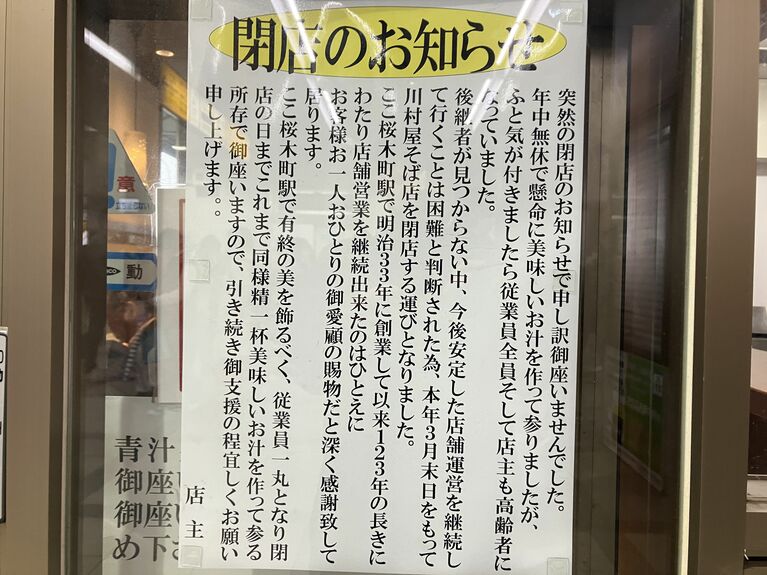 閉店のお知らせ
突然の閉店のお知らせで申し訳御座いませんでした。
年中無休で懸命に美味しいお汁を作って参りましたが、
ふと気が付きましたら従業員全員そして店主も高齢者に
なっていました。
後継者が見つからない中、今後安定した店舗運営を継続し
て行くことは困難と判断された為、本年3月末日をもって
川村屋そば店を閉店する運びとなりました。
ここ桜木町駅で明治33年に創業して以来123年の長きに
わたり店舗営業を継続出来たのはひとえに
お客様お一人おひとりの御愛顧の賜物だと深く感謝致して
居ります。
ここ桜木町駅で有終の美を飾るべく、従業員一丸となり閉
店の日までこれまで同様精一杯美味しいお汁を作って参る
所存で御座いますので、引き続き御支援の程宜しくお願い
申し上げます。。
店主
意
動
青汁
御座
御座
め下